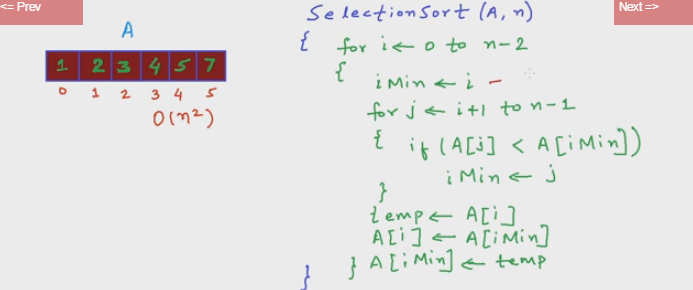 <= Prev
Next =>
A
1 2 3 4 5 7
0 1 2 3 4 5
O(n²)
SelectionSort (A, n)
{ for i ← 0 to n-2
{ iMin ← i -
for j ← i+1 to n-1
{ if (A[j] < A[iMin])
iMin ← j
}
temp ← A[i]
A[i] ← A[iMin]
} A[iMin] ← temp
}